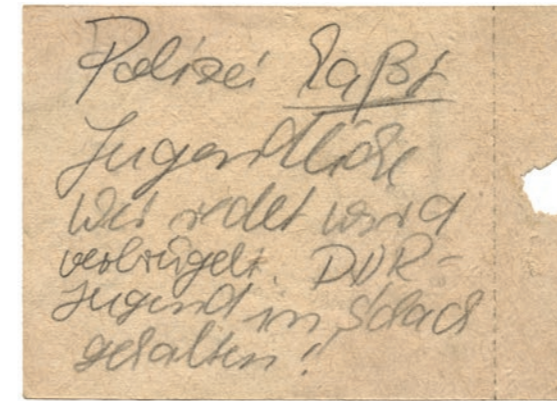 Polizei haßt
Jugendliche
Wer redet wird
verprügelt. DDR-
Jugend in Schach
gehalten!